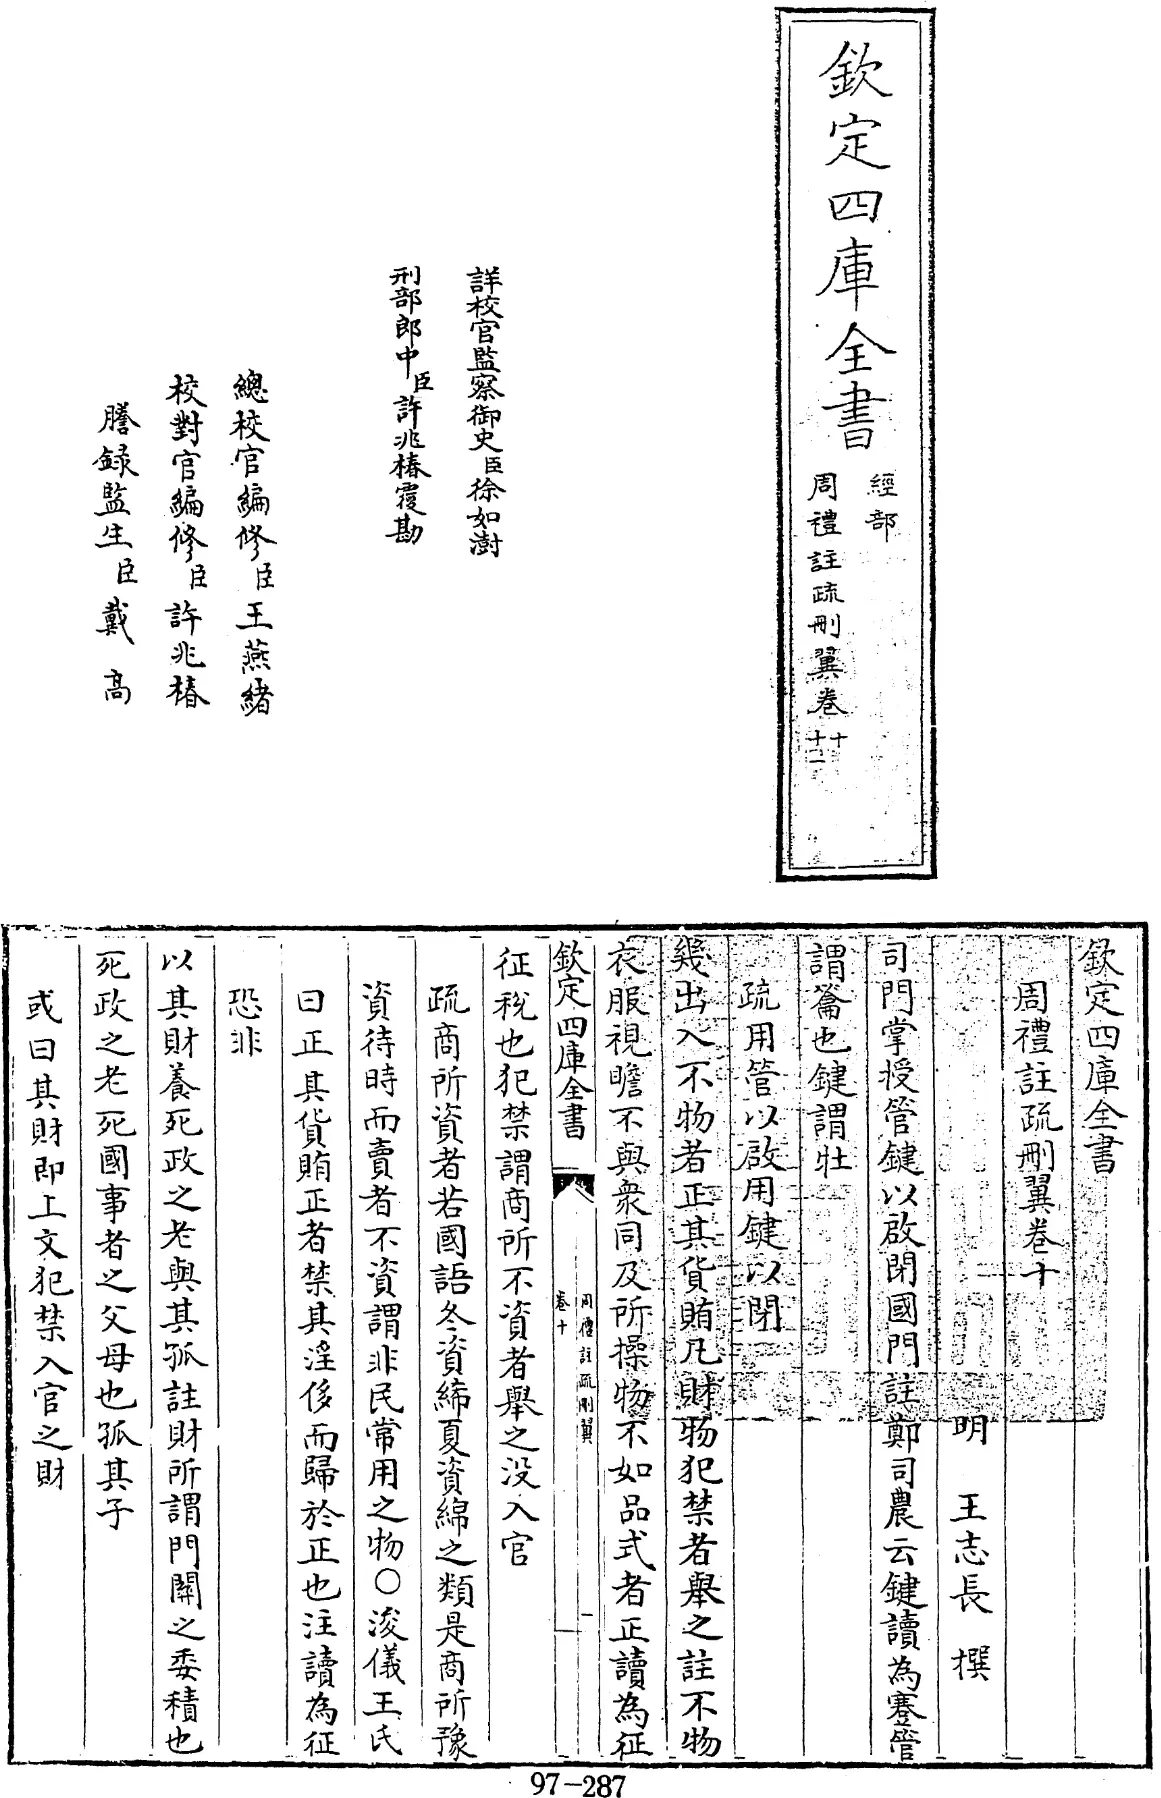 欽定四庫全書
經部
周禮註疏刪翼卷十
十一
詳校官監察御史臣徐如澍
刑部郎中臣許兆椿覆勘
總校官編修臣王燕緒
校對官編修臣許兆椿
謄録監生臣戴高
欽定四庫全書
周禮註疏刪翼卷十
明 王志長 撰
司門掌授管鍵以啟閉國門註鄭司農云鍵讀為蹇管
謂籥也鍵謂牡
疏用管以啟用鍵以閉
幾出入不物者正其貨賄凡財物犯禁者舉之註不物
衣服視瞻不與衆同及所操物不如品式者正讀為征
欽定四庫全書
周禮註疏刪翼
卷十
一
征稅也犯禁謂商所不資者舉之没入官
疏商所資者若國語冬資絺夏資綿之類是商所豫
資待時而賣者不資謂非民常用之物○浚儀王氏
曰正其貨賄正者禁其淫侈而歸於正也注讀為征
恐非
以其財養死政之老與其孤註財所謂門關之委積也
死政之老死國事者之父母也孤其子
或曰其財即上文犯禁入官之財
97-287